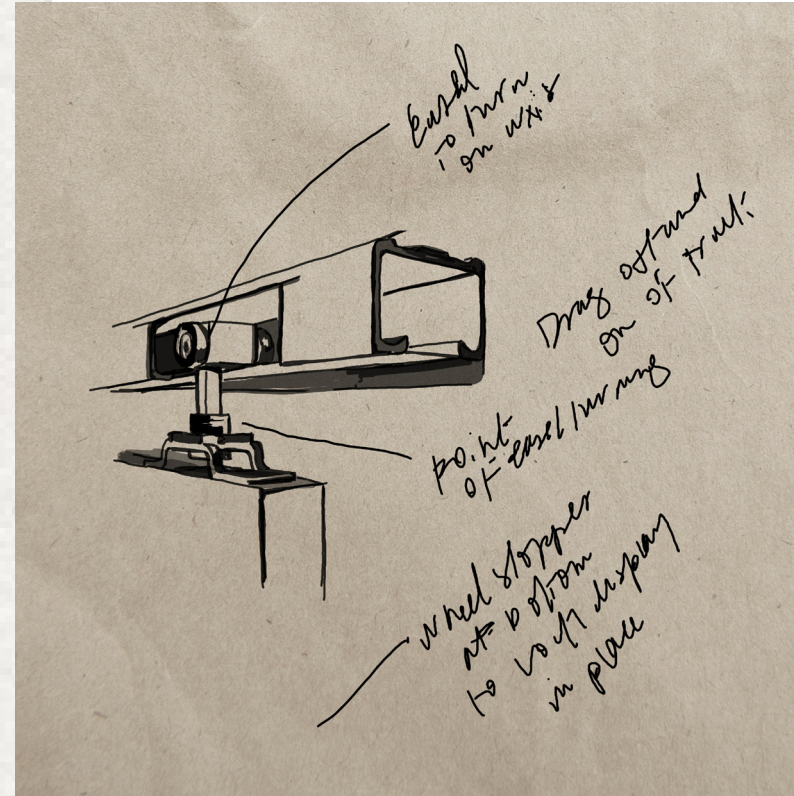 Easel
to turn
on axis
Drag off and
on of track
point
of easel turning
wheel stopper
at bottom
to lock display
in place